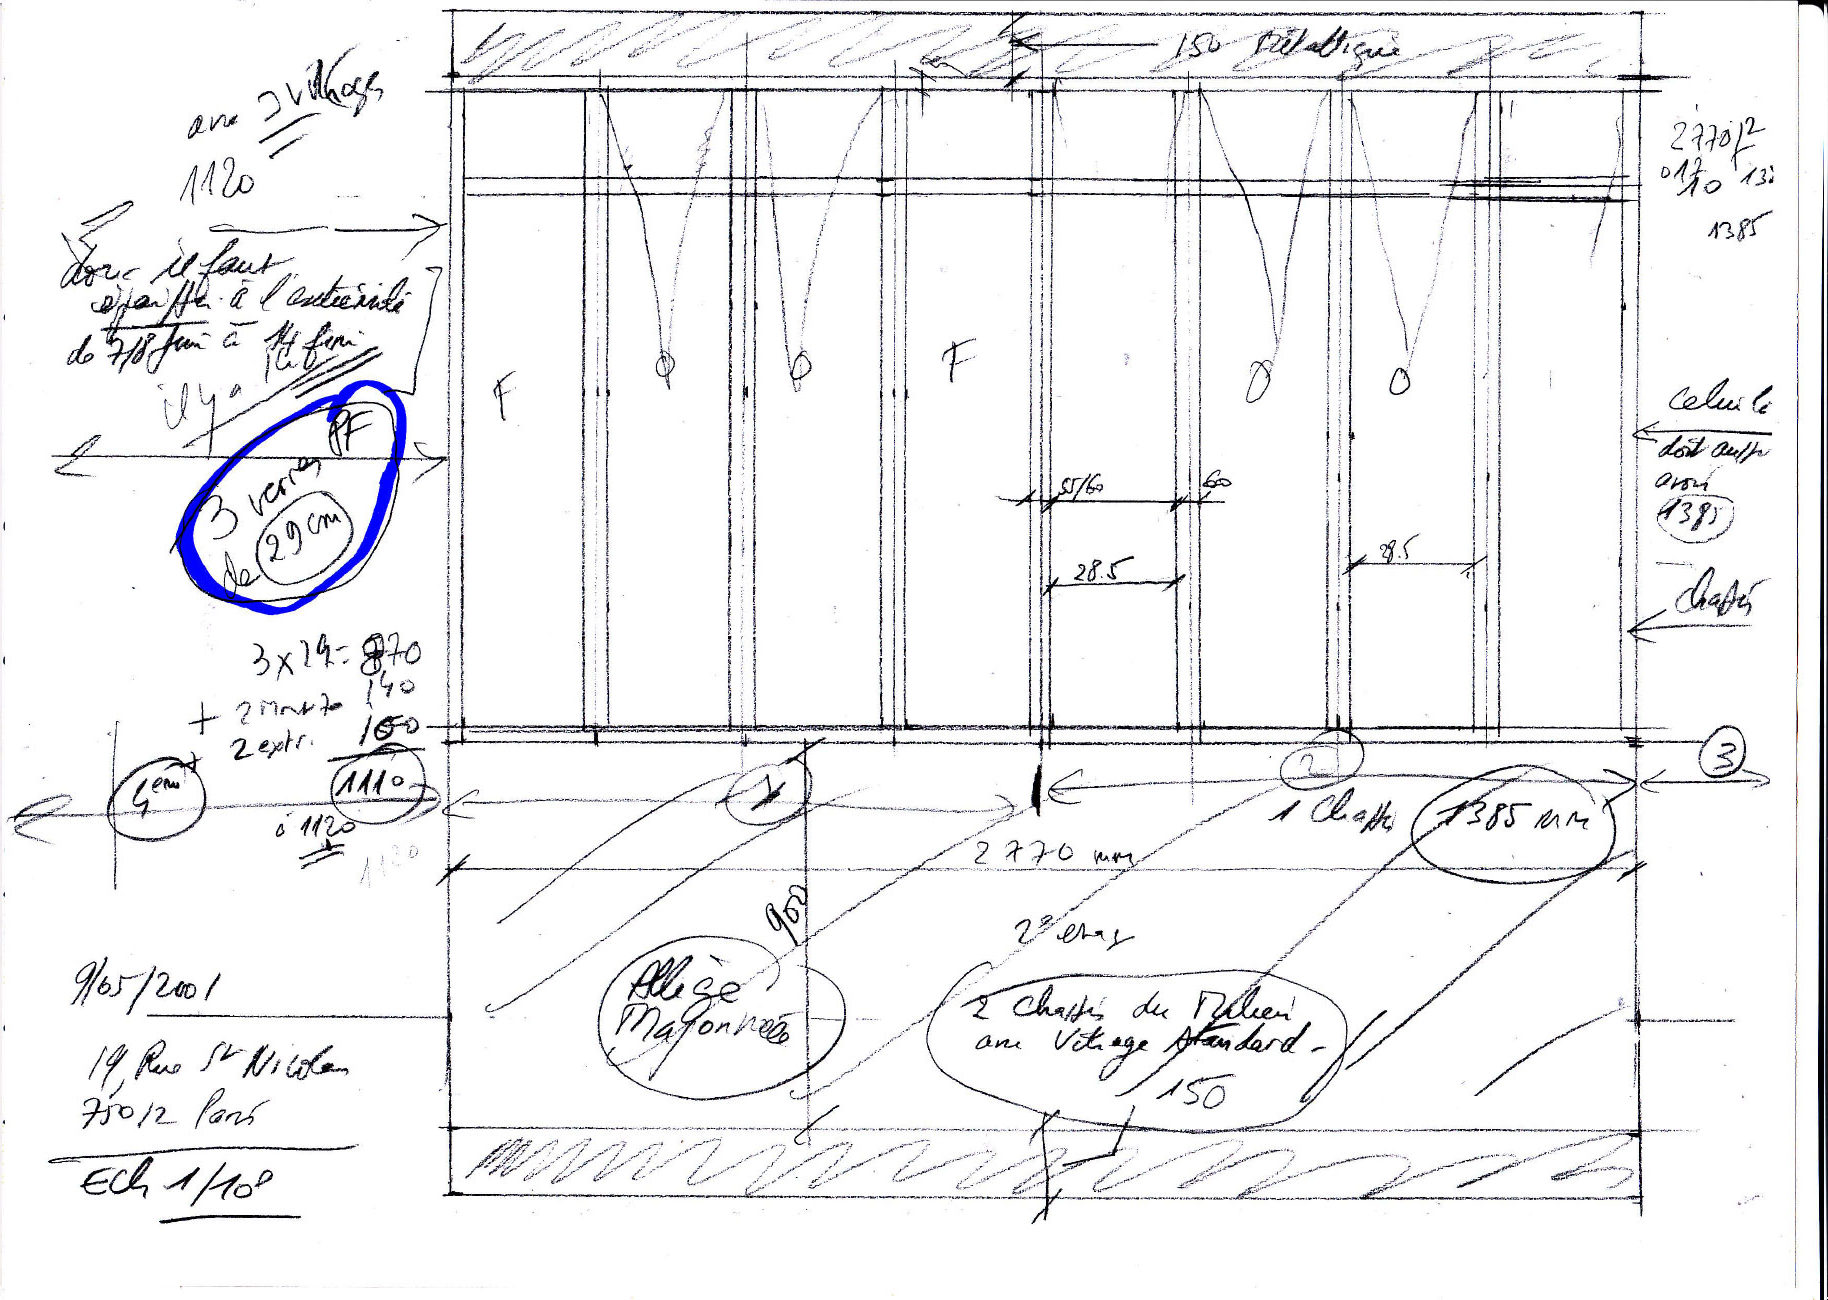 150 Métallique
avec 3 vitrages
1120
donc il faut
à l'extrémité
de 7/8 fini à 14 fini
14 fini
il y a
3 verres PF
de 29 cm
3 x 29 = 870
140
+ 2 Mont 70
2 extr. 100
1110
à 1120
1120
4em
9/05/2001
19, Rue St Nicolas
75012 Paris
Ech 1/10e
F
O
O
F
O
O
55/60
60
28.5
28.5
1
2
3
1 Chassis
1385 mm
2770 mm
900
2e etag
Allège
Maçonnée
2 Chassis du Milieu
avec Vitrage Standard -
150
2770/2
1385
celui là
doit aussi
avoir
1385
chassis